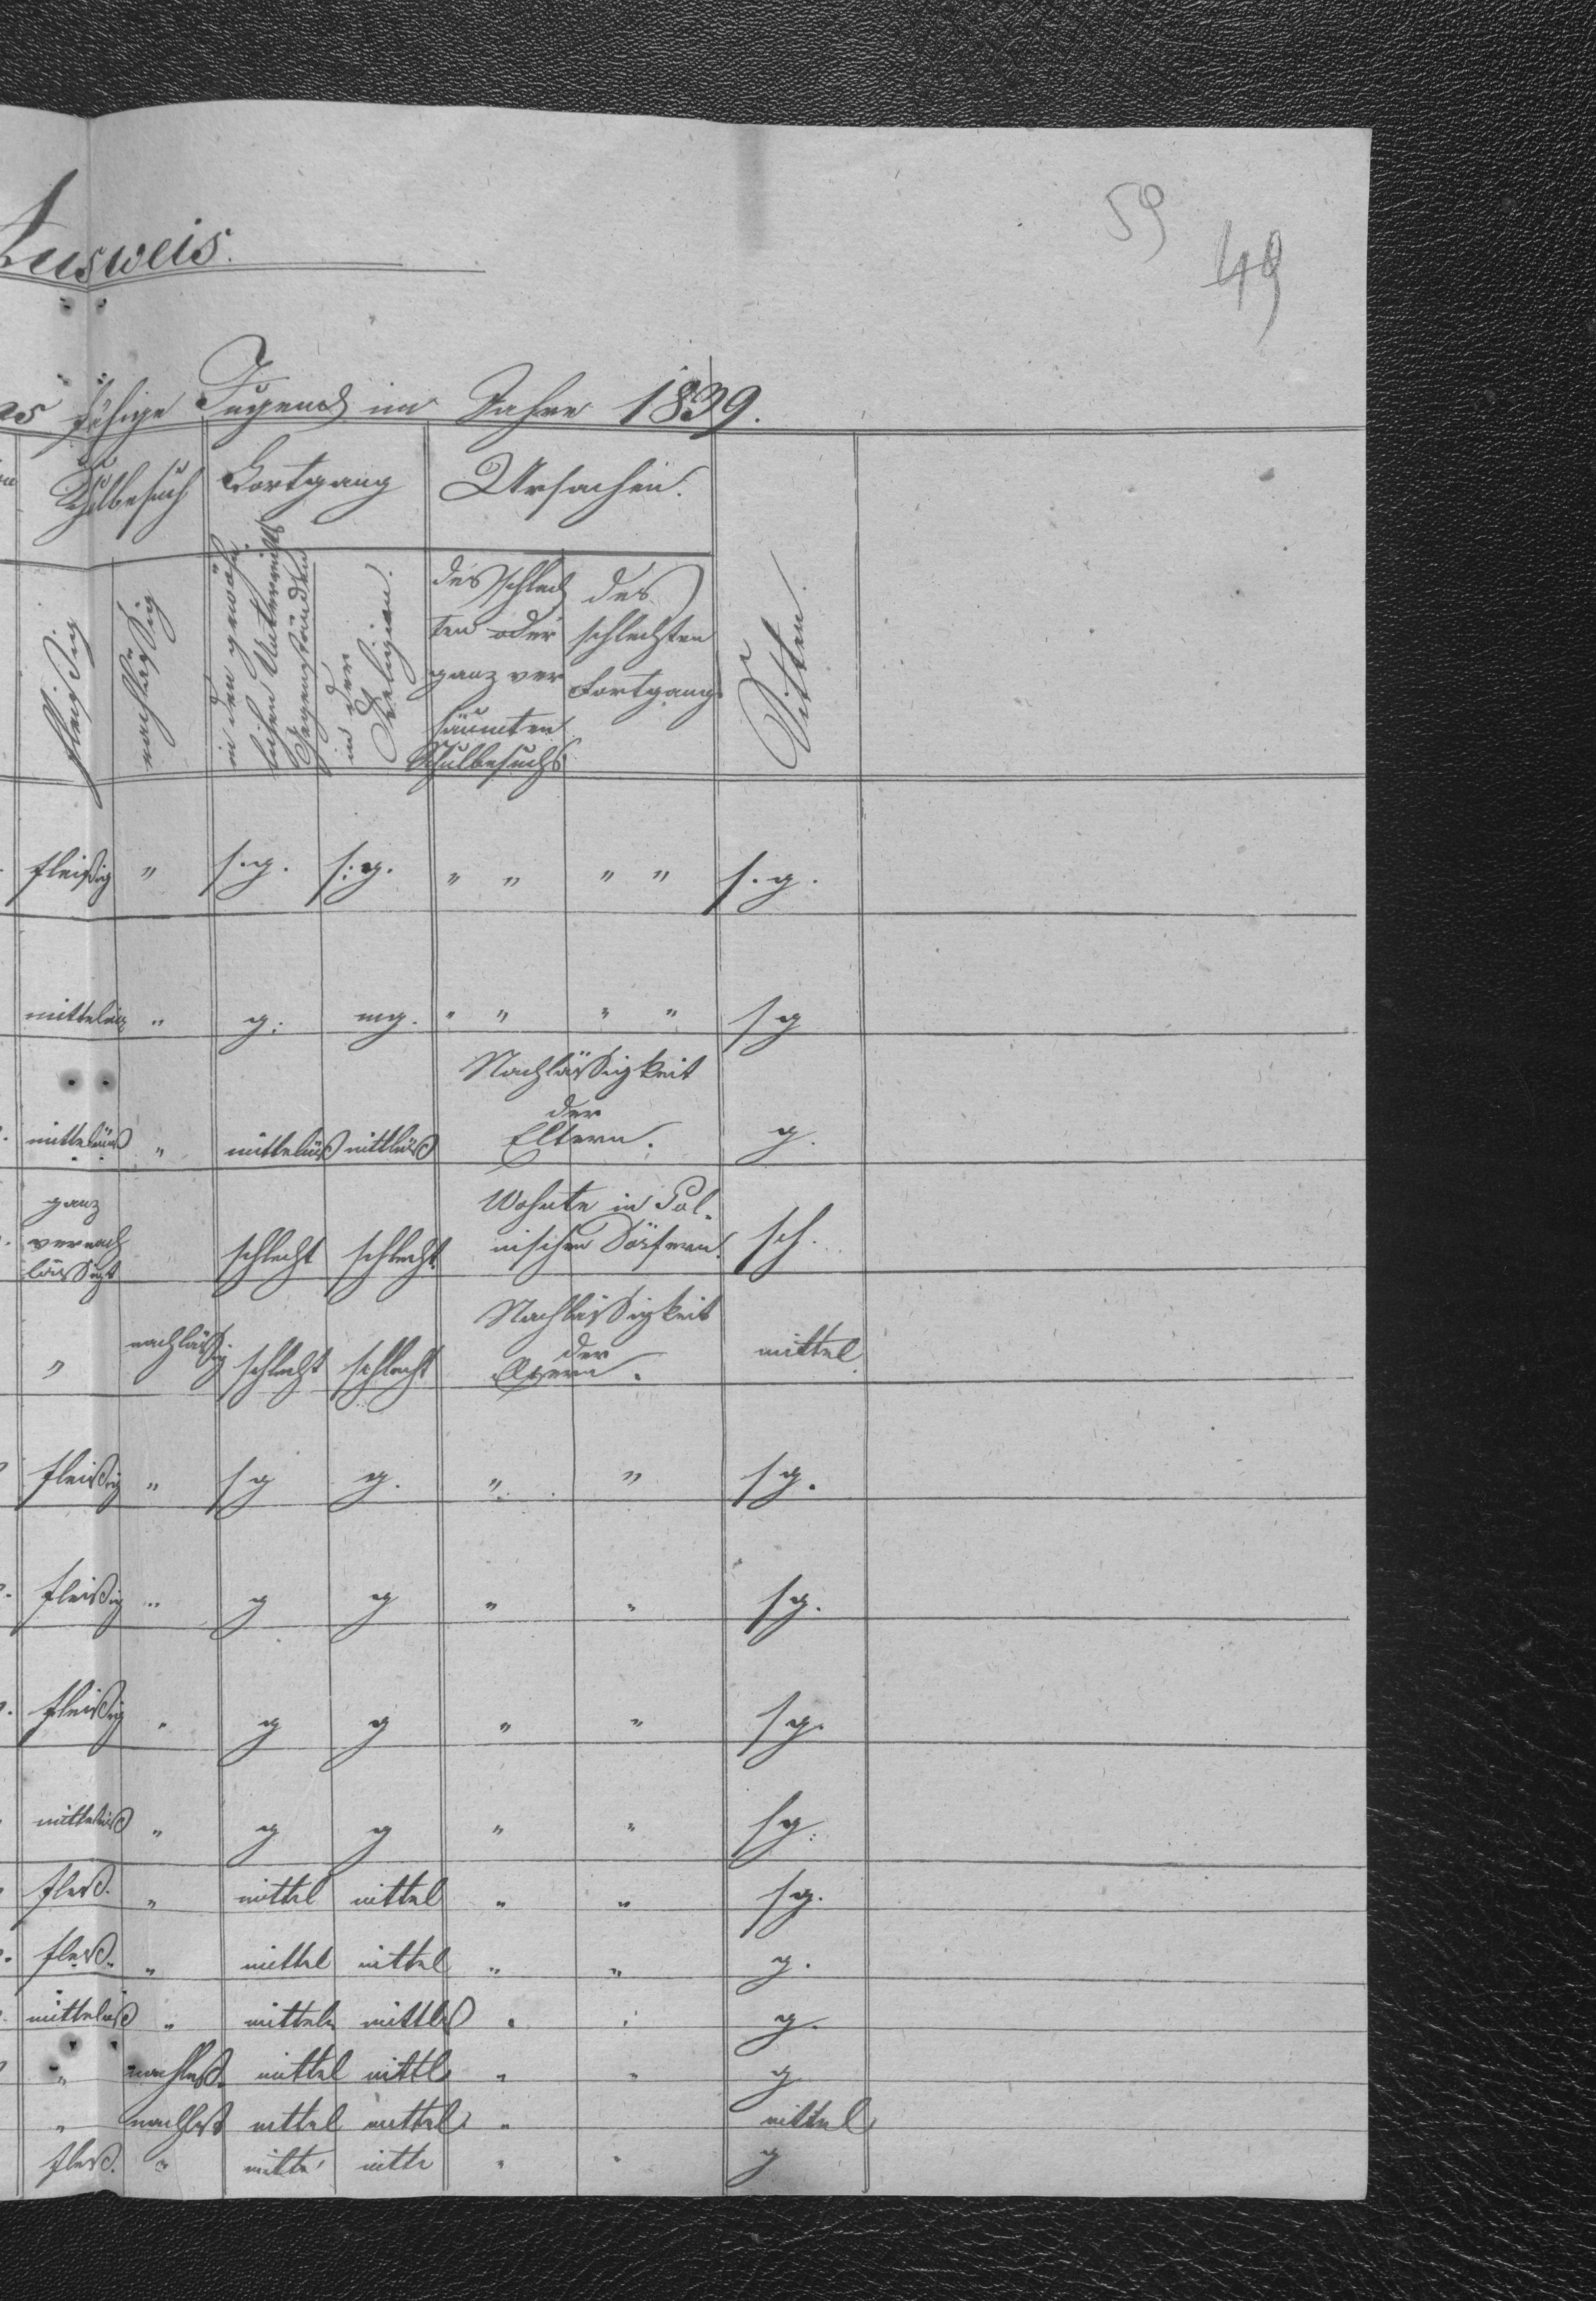 59
49
Ausweis.
fähige Jugend im Jahre 1839.
Schulbesuch Fortgang Ursachen.
fleißig
nachläßig
in den gewöhn
lichen Unterrichts
Gegenständen
in der
Religion.
des schlech
ten oder
ganz ver
säumten
Schulbesuchs
des
schlechten
Fortgangs
Sitten.
fleißig " s. g. s. g. " " " " s. g.
" g. mg. " " " " sg
Nachläßigkeit
der
mittelmäß " mittelmäß mittlmäß Eltern. g.
ganz
vernach
läßigt
schlecht schlecht
Wohnte in Pol-
nischen Dörfern.
sch.
Nachläßigkeit
der
" nachläßig schlecht schlecht Eltern. mittel
fleißig " sg g. " " sg.
fleißig " g g " " sg.
fleißig " g g " " sg.
mittelmäß " g g " " sg.
fleiß. " mittel mittel " " sg.
fleiß. " mittel mittel " " g.
mittelmäß " mittel g.
" nachläß. mittel mittl " " g
" nachläß mittel mittel " mittel
fleiß. " g